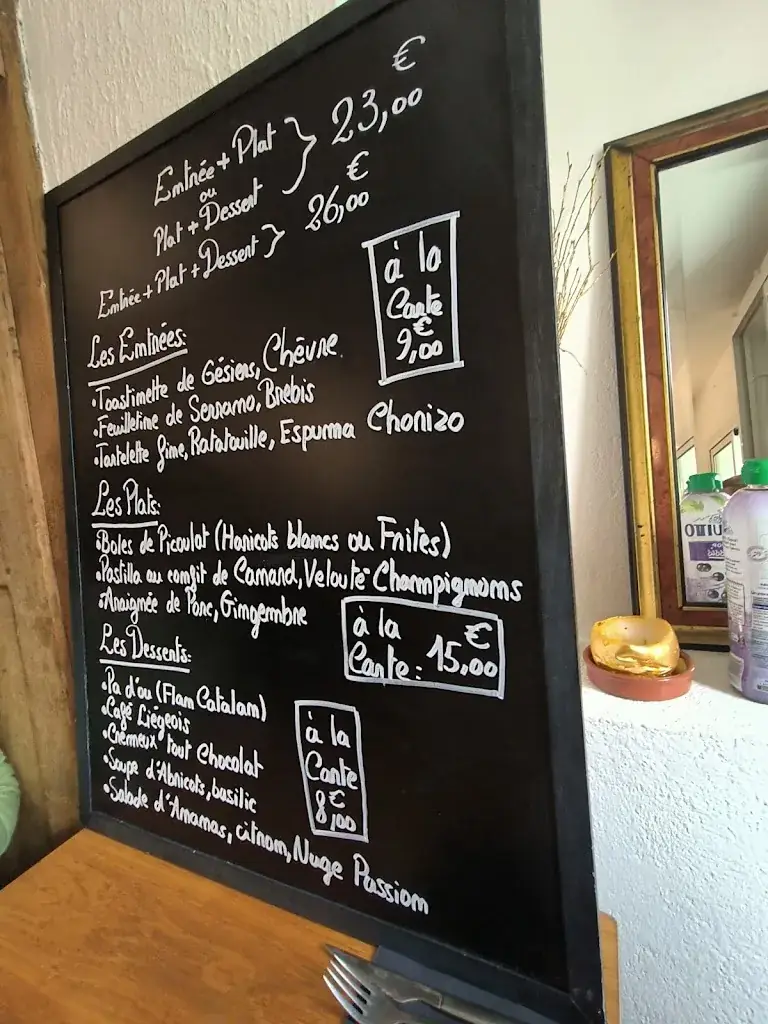 €
Entrée + Plat } 23,00
ou
Plat + Dessert
€
Entrée + Plat + Dessert } 26,00
à la
Carte
€
9,00
Les Entrées:
•Toastinette de Gésiers, Chèvre
•Feuilletine de Serrano, Brebis
•Tartelette fine, Ratatouille, Espuma Chorizo
Les Plats:
•Boles de Picoulat (Haricots blancs ou Frites)
•Pastilla au confit de Canard, Velouté Champignons
•Araignée de Porc, Gingembre
à la €
Carte: 15,00
Les Desserts:
•Pa d'ou (Flan Catalan)
•Café Liégeois
•Crémeux tout Chocolat
•Soupe d'Abricots, basilic
•Salade d'Ananas, citron, Nuge Passion
à la
Carte
€
8,00